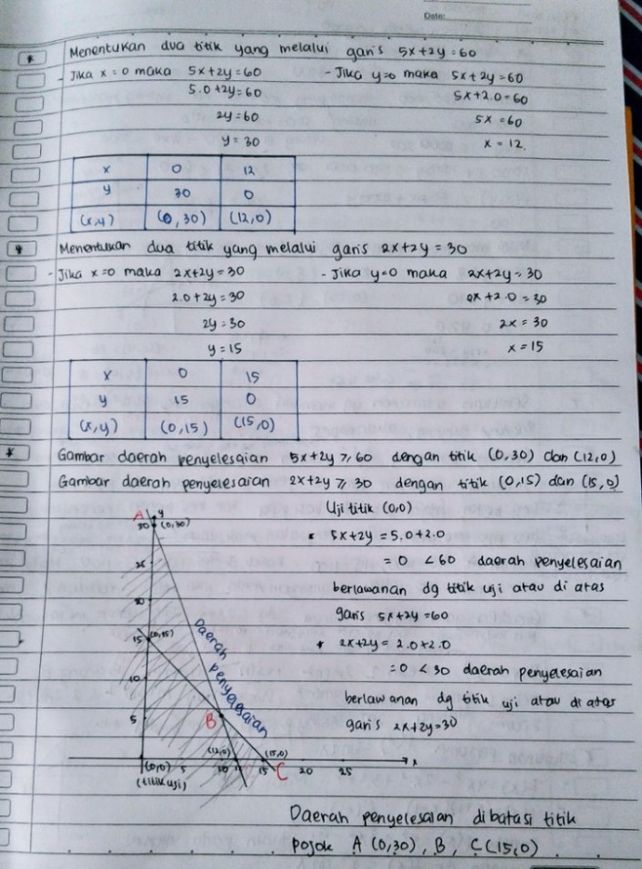 Date:
* Menentukan dua titik yang melalui garis 5x+2y=60
- Jika x=0 maka 5x+2y=60 - Jika y=0 maka 5x+2y=60
5.0+2y=60 5x+2.0=60
2y=60 5x=60
y=30 x=12.
x 0 12
y 30 0
(x,y) (0,30) (12,0)
* Menentukan dua titik yang melalui garis 2x+2y=30
- Jika x=0 maka 2x+2y=30 - Jika y=0 maka 2x+2y=30
2.0+2y=30 2x+2.0=30
2y=30 2x=30
y=15 x=15
x 0 15
y 15 0
(x,y) (0,15) (15,0)
* Gambar daerah penyelesaian 5x+2y≥60 dengan titik (0,30) dan (12,0)
Gambar daerah penyelesaian 2x+2y≥30 dengan titik (0,15) dan (15,0)
Uji titik (0,0)
• 5x+2y=5.0+2.0
=0 <60 daerah penyelesaian
berlawanan dg titik uji atau di atas
garis 5x+2y=60
• 2x+2y=2.0+2.0
=0 <30 daerah penyelesaian
berlawanan dg titik uji atau di atas
garis 2x+2y=30
A y
30 (0,30)
25
20
15 (0,15)
10
5
Daerah penyelesaian
B
(12,0) (15,0)
(0,0) 5 10 15 C 20 25 x
(titik uji)
Daerah penyelesaian dibatasi titik
pojok A (0,30), B, C(15,0)